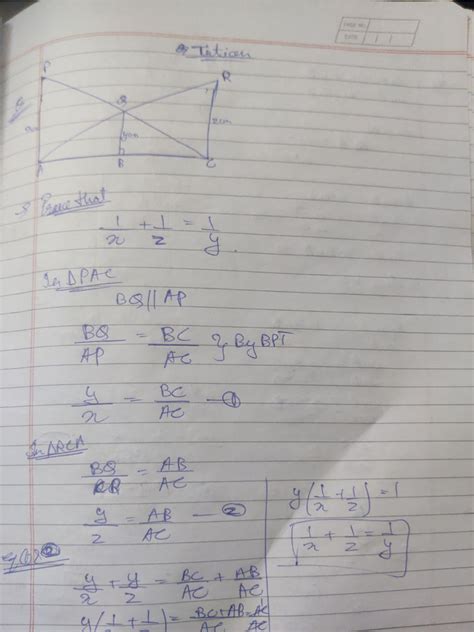 PAGE NO.
DATE
Tution
P
R
Q
x cm
y cm
z cm
A
B
C
Prove that
1/x + 1/z = 1/y
In ΔPAC
BQ || AP
BQ/AP = BC/AC } By BPT
y/x = BC/AC —①
In ΔRCA
BQ/CR = AB/AC
y/z = AB/AC —②
y/x + y/z = BC/AC + AB/AC
y(1/x + 1/z) = BC+AB=AC/AC
y(1/x + 1/z) = 1
1/x + 1/z = 1/y